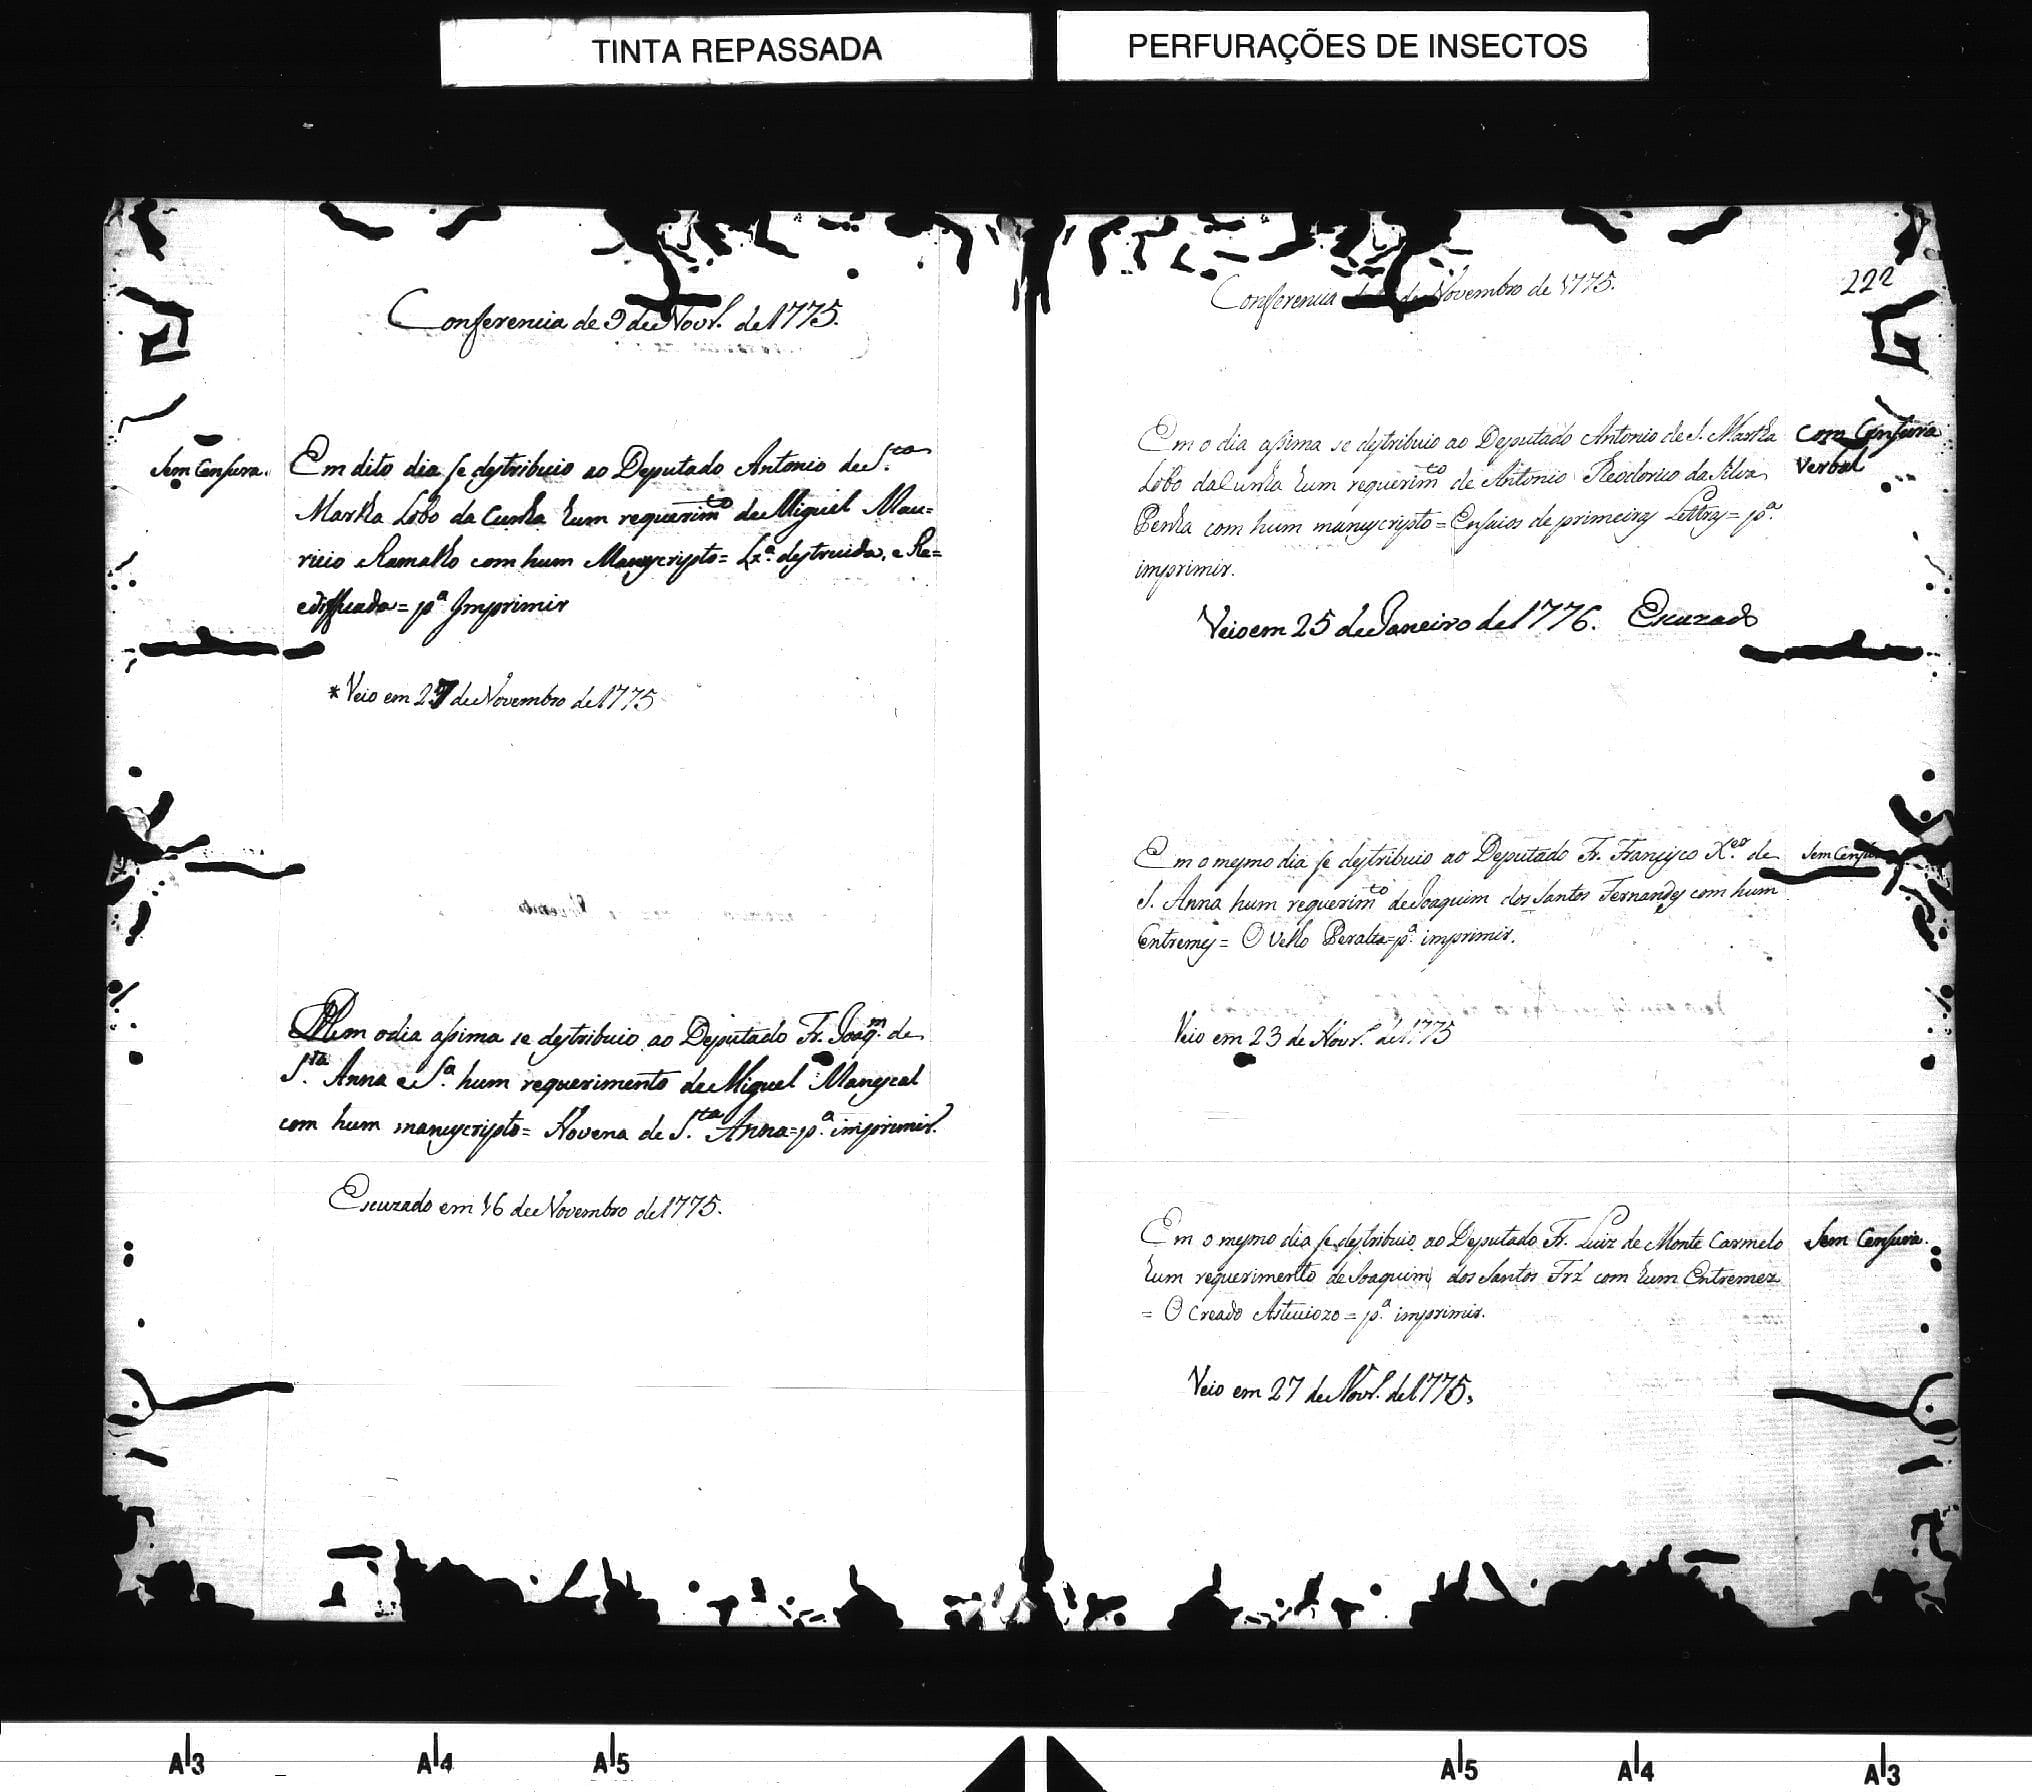 TINTA REPASSADA
PERFURAÇÕES DE INSECTOS
Conferencia de 9 de Novr. de 1775.
Sem Censura.
Em dito dia se destribuio ao Deputado Antonio de S.ta
Martha Lobo da Cunha hum requerimto de Miguel Mau=
ricio Ramalho com hum Manuscripto= Lxª. destruida, e Re=
edifficada= pª Imprimir
* Veio em 27 de Novembro de 1775
Em o dia assima se destribuio ao Deputado Fr. Joaqm. de
S.ta Anna e Sª. hum requerimento de Miguel Manescal
com hum manuscripto= Novena de S.ta Anna= pª. imprimir.
Escuzado em 16 de Novembro de 1775.
222
Conferencia de Novembro de 1775.
Em o dia assima se destribuio ao Deputado Antonio de S. Martha
Lobo da Cunha hum requerimto de Antonio Theodorico da Silva
Penha com hum manuscripto= Ensaios de primeiras Lettras= pª.
imprimir.
Com Censura
Verbal
Veio em 25 de Janeiro de 1776. Escuzado
Em o mesmo dia se destribuio ao Deputado Fr. Francisco X.er de
S. Anna hum requerimto de Joaquim dos Santos Fernandes com hum
Entremes= O Velho Peralta= pª. imprimir.
Sem Censu
Veio em 23 de Novr. de 1775
Em o mesmo dia se destribuio ao Deputado Fr. Luiz de Monte Carmelo
hum requerimento de Joaquim dos Santos Frz com hum Entremez
= O Creado Astuciozo = pª. imprimir.
Sem Censura.
Veio em 27 de Novr. de 1775.
A3
A4
A5
A5
A4
A3